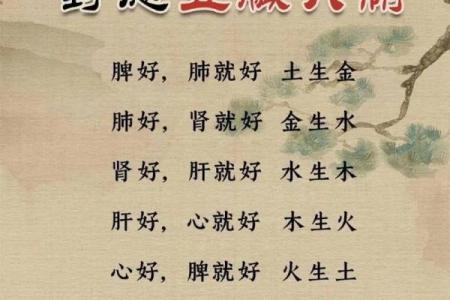 脾好，肺就好 土生金
肺好，肾就好 金生水
肾好，肝就好 水生木
肝好，心就好 木生火
心好，脾就好 火生土